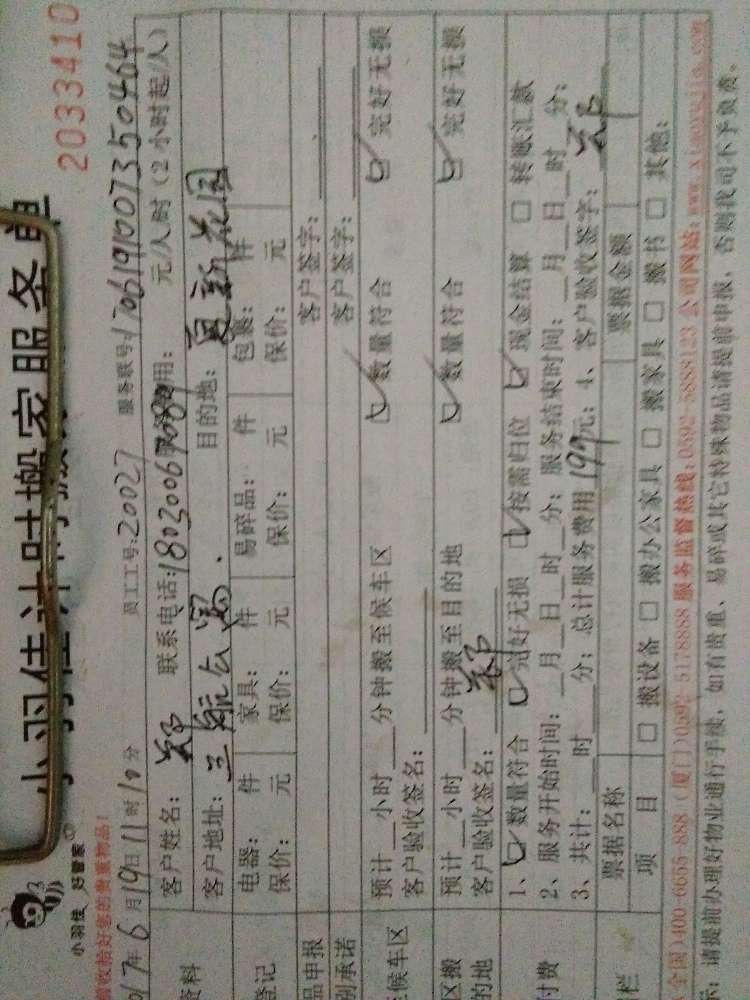 小羽佳计时搬家服务单 2033410
小羽佳 好管家
收拾好您的贵重物品!
017年6月19日11时10分 员工工号:20027 服务联号:1706191007350464
客户姓名: 郑 联系电话:1803006 用: 元/人时(2小时起/人)
客户地址: 三航公寓 目的地: 夏新花园
电器: 件 家具: 件 易碎品: 件 包裹: 件
保价: 元 保价: 元 保价: 元 保价: 元
品申报 客户签字:
别承诺 客户签字:
预计__小时__分钟搬至候车区 数量符合 完好无损
客户验收签名:
至候车区
预计__小时__分钟搬至目的地 数量符合 完好无损
客户验收签名: 郑
1、数量符合 完好无损 按需归位 现金结算 □ 转账汇款
2、服务开始时间:__月__日__时__分; 服务结束时间:__月__日__时__分;
3、共计:__时__分; 总计服务费用199元; 4、客户验收签字: 郑
付费
票据名称 票据金额
项 目 □ 搬设备 □ 搬办公家具 □ 搬家具 □ 搬书 □ 其他:
全国)400-6655-888 (厦门)0592-5178888 服务监督热线:0592-5888123 公司网站:www.xiaoyujia.com
示: 请提前办理好物业通行手续, 如有贵重、易碎或其它特殊物品请提前申报, 否则我司不予负责。